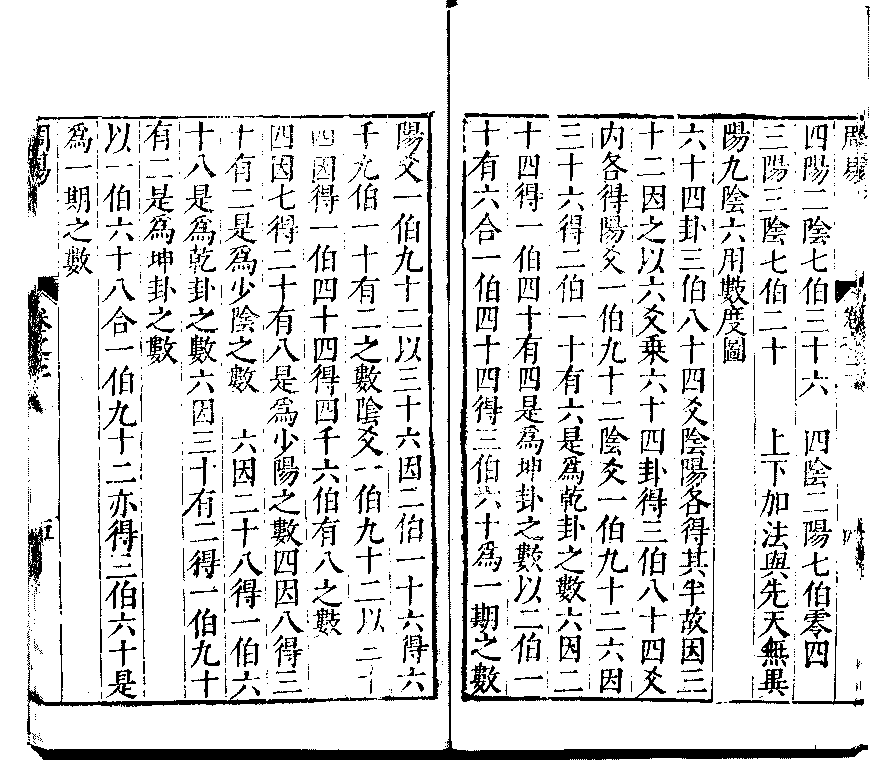 四陽二陰七伯三十六　四陰二陽七伯零四
三陽三陰七伯二十　上下加法與先天無異
陽九陰六用數度圖
六十四卦三伯八十四爻陰陽各得其半故因三
十二因之以六爻乘六十四卦得三伯八十四爻
内各得陽爻一伯九十二陰爻一伯九十二六因
三十六得二伯一十有六是爲乾卦之數六因二
十四得一伯四十有四是爲坤卦之數以二伯一
十有六合一伯四十四得三伯六十爲一期之數
陽爻一伯九十二以三十六因二伯一十六得六
千九伯一十有二之數陰爻一伯九十二以二十
四因得一伯四十四得四千六伯有八之數
四因七得二十有八是爲少陽之數四因八得三
十有二是爲少陰之數　六因二十八得一伯六
十八是爲乾卦之數六因三十有二得一伯九十
有二是爲坤卦之數
以一伯六十八合一伯九十二亦得三伯六十是
爲一期之數
周易
五